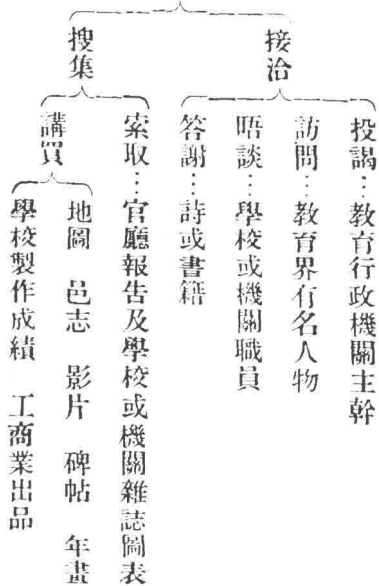 接洽
投謁…教育行政機關主幹
訪問…教育界有名人物
晤談…學校或機關職員
答謝…詩或書籍
搜集
索取…官廳報告及學校或機關雜誌圖表
講買
地圖 邑志 影片 碑帖 年畫
學校製作成績 工商業出品